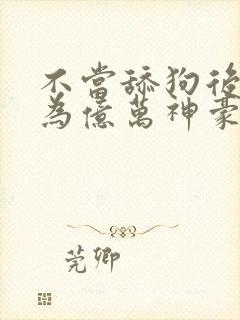 不當舔狗後
為億萬神豪
莞卿